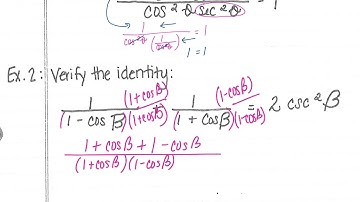 cos²θ sec²θ
1/(cos²θ(1/cos²θ)) = 1
1 = 1
Ex. 2: Verify the identity:
1/(1 - cos β) (1+cosβ)/(1+cosβ) 1/(1 + cosβ) (1-cosβ)/(1-cosβ) = 2 csc²β
(1+cosβ + 1-cosβ)/((1+cosβ)(1-cosβ))